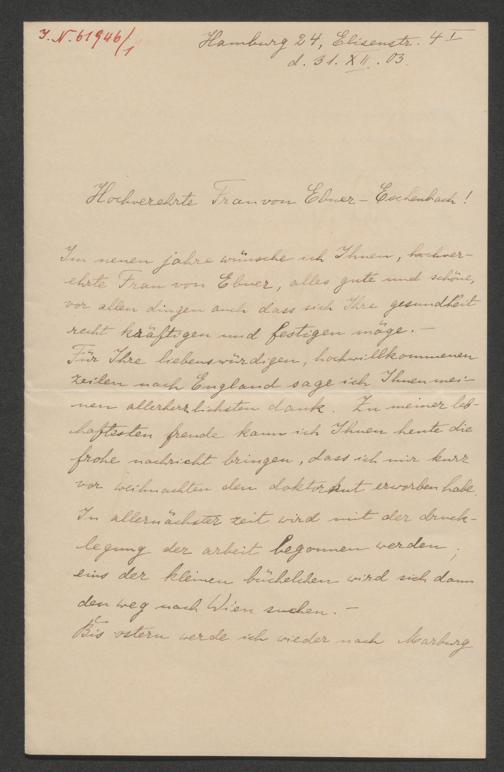 J.N. 61946/1
Hamburg 24, Elisenstr. 4 I
d. 31. XII. 03.
Hochverehrte Frau von Ebner-Eschenbach!
Im neuen jahre wünsche ich Ihnen, hochver-
ehrte Frau von Ebner, alles gute und schöne,
vor allen dingen auch dass sich Ihre gesundheit
recht kräftigen und festigen möge. —
Für Ihre liebenswürdigen, hochwillkommenen
zeilen nach England sage ich Ihnen mei-
nen allerherzlichsten dank. Zu meiner leb-
haftesten freude kann ich Ihnen heute die
frohe nachricht bringen, dass ich mir kurz
vor weihnachten den doktorhut erworben habe.
In allernächster zeit wird mit der druck-
legung der arbeit begonnen werden;
eins der kleinen büchelchen wird sich dann
den weg nach Wien suchen. —
Bis ostern werde ich wieder nach Marburg